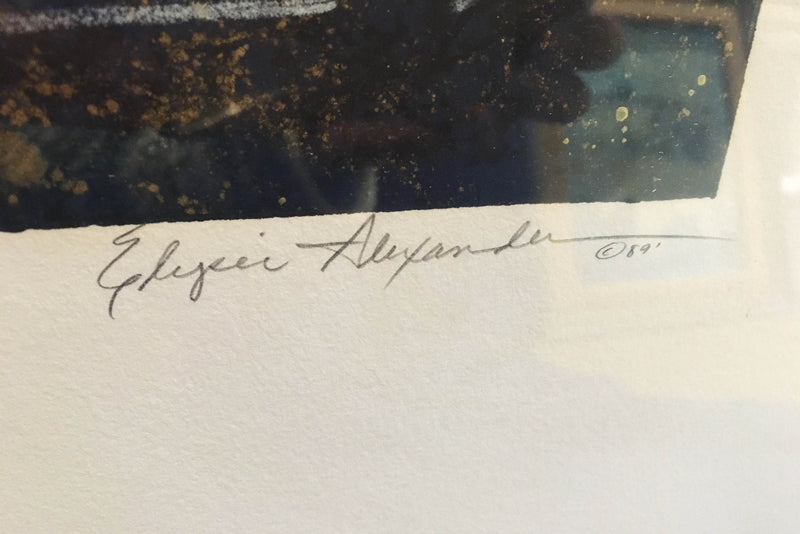 Elysia Alexander ©89'